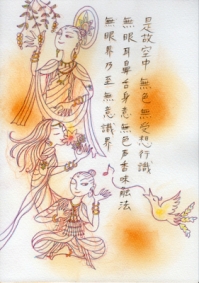 是故空中 無色無受想行識
無眼耳鼻舌身意無色声香味触法
無眼界乃至無意識界